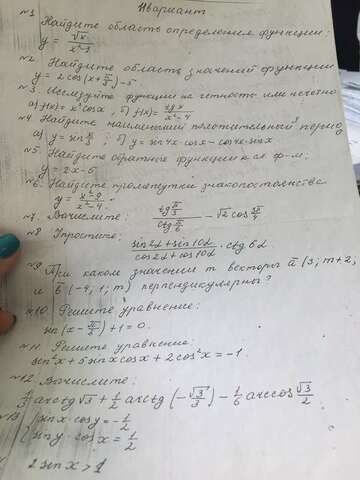 II вариант
№1. Найдите область определения функции:
y = √x / x²-1
№2. Найдите область значений функции
y = 2cos(x + π/3) - 5
№3. Исследуйте функции на четность или нечетно
а) f(x) = x² cos x, б) f(x) = tg x / x²-4
№4. Найдите наименьший положительный период
а) y = sin x/3 ; б) y = sin4x·cosx - cos4x·sinx
№5. Найдите обратные функции к ф-м:
y = 2x - 5
№6. Найдите промежутки знакопостоянства
y = x²-9 / x²-4
№7. Вычислите: tg π/3 / ctg π/6 - √2 cos 3π/4
№8 Упростите:
sin2α + sin10α / cos2α + cos10α · ctg6α
№9 При каком значении m векторы a (3; m+2;
и b (-4, 1; m) перпендикулярны?
№10. Решите уравнение:
sin(x - π/3) + 1 = 0.
№11. Решите уравнение:
sin²x + 5 sinx cosx + 2cos²x = -1
№12. Вычислите:
arctg√3 + 1/2 arctg(-√3/3) - 1/6 arccos √3/2
13. { sinx cosy = -1/2
{ siny · cosx = 1/2
2 sin x > 1